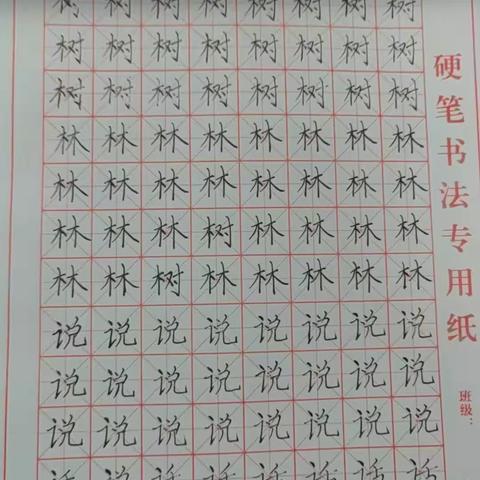 树树树树树树树树
树树树树树树树树
树树树树树树树树
林林林林林林林林
林林林林林林林林
林林林树林林林林
林林树林林林林林
说说说说说说说说
说说说说说说说说
说说说说说说说说
话话话话话话话话
硬笔书法专用纸
班级：